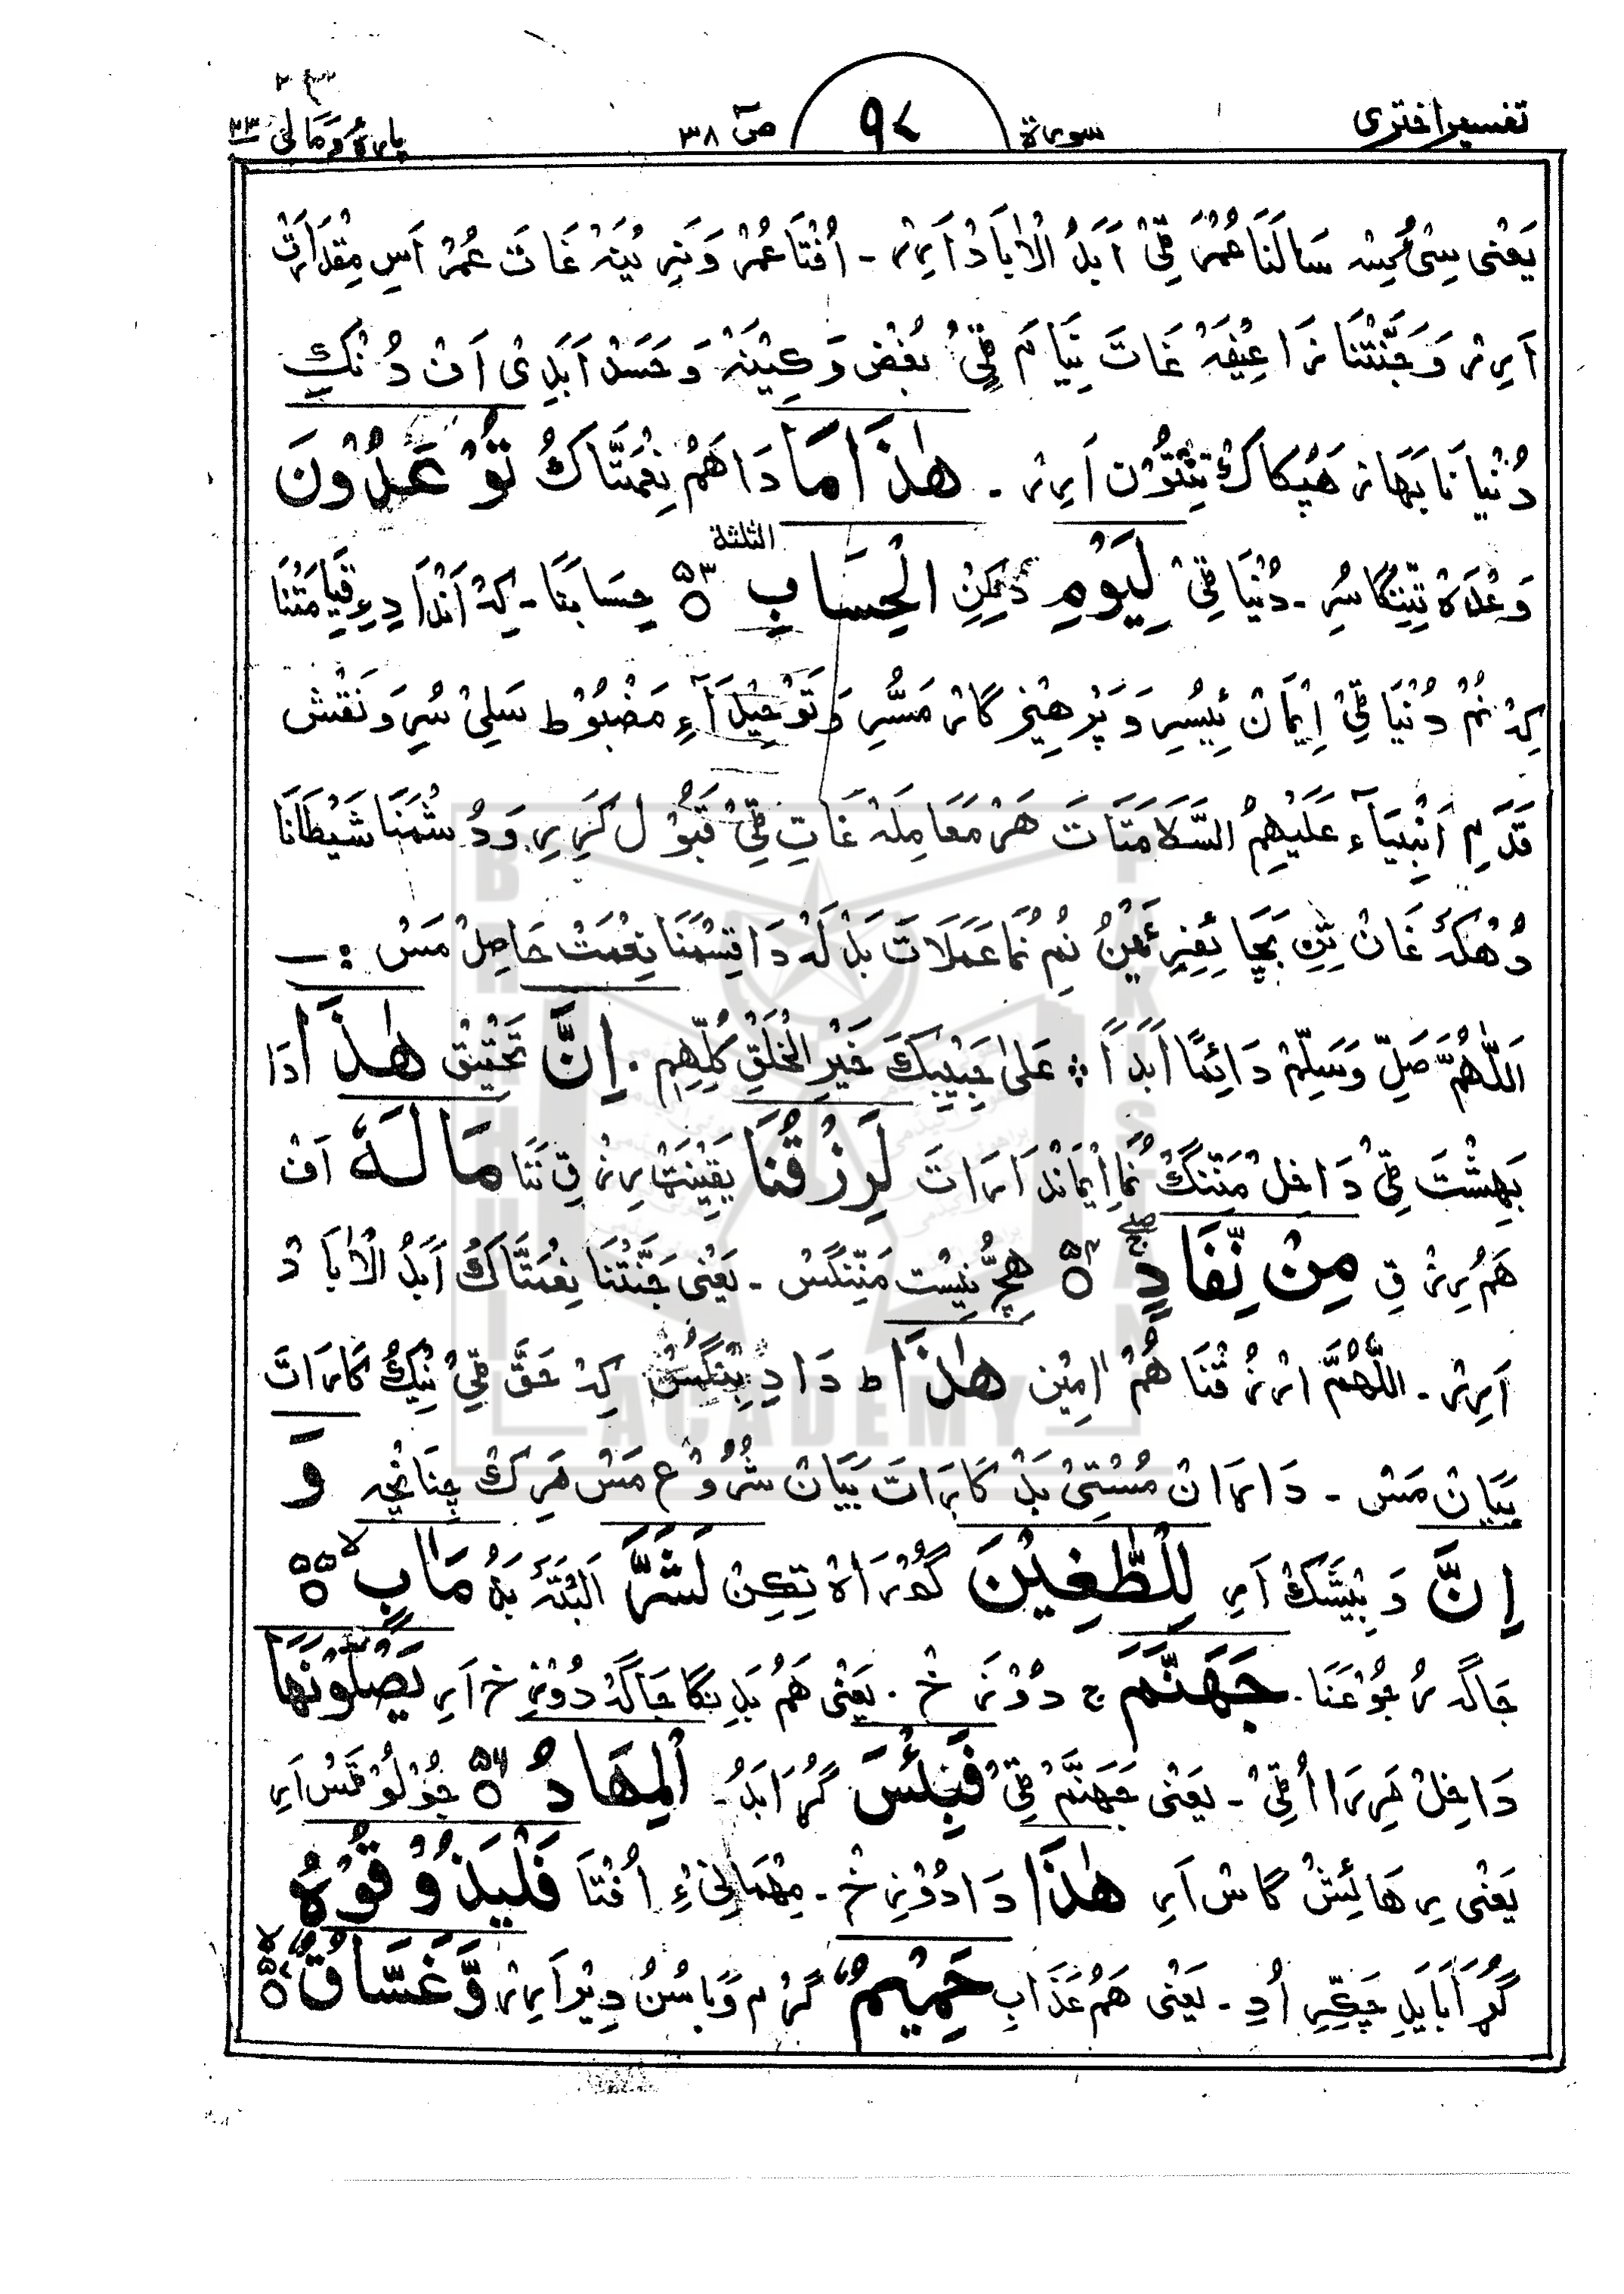 تفسیر اختری سورۃ ۹۷ ص ۳۸ پارہ وَمَالِیَ ۲۳
یَعْنِی سِیْ مُسِہ سَالَنَا عُمْرٌ ٹِیْ اَبَدُ الْاٰبَادْ اَرِیْر ۔ اُفْتَا عُمْر وَ نَرِیْنَہ غَاتَ عُمْرْ اَسِ مِقْدَارَٹ
اَرِیْر وَ جَنَّتْنَا زَاعِیْفَہْ غَاتَ نِیَّام ٹِیْ بُغْض وَ کِیْنَہْ وَ حَسَدْ اَبَدِیْ اَفْ دُنْکِ
دُنْیَا نَا بَھَاز ھَپِکَاکْ تِیْتُوْن اَرِیْر ۔ ھٰذَا مَا دَا ھَمْ نِعْمَتَّاکُ تُوْعَدُوْنَ
وَعْدَہ تِنِنْگَاسُرِ ۔ دُنْیَا ٹِیْ لِیَوْمِ دَکِنْ الْحِسَابِ الثلثۃ ۵۳ حِسَابْنَا ۔ کِہْ اَنْدَا دِءِ قِیَامَتْنَا
کِہْ نُمْ دُنْیَا ٹِیْ اِیْمَانْ ہِیْسُرِ وَ پَرْھِیْزِگَارْ مَسُّرِ وَ تَوْحِیْدَآءِ مَضْبُوْط سَلِیْ سُرِ وَ نَقْشِ
قَدَمِ اَنْبِیَآء عَلَیْہِمُ السَّلَامَتَاتَ ھَرْ مَعَامِلَہْ غَاتِ ٹِیْ قَبُوْل کَرِیرِ وَ دُشْمَنَا شَیْطَانَا
دُھْکَہْ غَانْ تِنِ بَچَا یفِرِ نُم نُمَا عَمَلَاتَ بَدْلَہْ دَا قِسْمَنَا نِعْمَتْ حَاصِلْ مَسْ :ــ
اَللّٰھُمَّ صَلِّ وَسَلِّمْ دَائِمًا اَبَدًا ؞ عَلٰی حَبِیْبِکَ خَیْرِ الْخَلْقِ کُلِّھِمِ ۔ اِنَّ تَحْقِیْق ھٰذَا دَا
بَہِشْتَ ٹِیْ دَاخِلْ مَنِّنْگْ نُمَا اِیْمَانْدَارَاتَ لَرِزْقُنَا یَقِیْنَتْ رِزْقِ نَنَا مَالَہٗ اَفْ
ھَمْ رِزْقِ مِنْ نَّفَادٍ ۵۴ ھِچُّ نِیْسْت مَنِّنْگَسْ ۔ یَعْنِی جَنَّتْنَا نِعْمَتَّاکُ اَبَدُ الْاٰبَادْ
اَرِیْر ۔ اَللّٰھُمَّ ارْزُقْنَا ھُمْ اٰمِیْن ھٰذَا ط دَا دِ کِہْ حَقَّ ٹِیْ نِیْکُ کَارَاتَ
بَیَانْ مَسْ ۔ دَارَانْ مُسْتِیْ بَدْ کَارَاتَ بَیَانْ شُرُوْع مَسْ مَرِکْ چُنَانْچِہ وَ
اِنَّ وَ بِیْشَکْ اَرِ لِلطّٰغِیْنَ گُمْرَاہْ تِکِنْ لَشَرَّ اَلْبَتَّہ بَدُ مَاٰبٍ ۵۵
جَاگَہ رُجُوْعَنَا ۔ جَھَنَّمَ ج دُوْزَخْ ۔ یَعْنِی ھَمْ بَدِ نِگَا جَاگَہْ دُوْزِخْ اَرِ یَصْلَوْنَھَا
دَاخِلْ مَرِرَا اُٹِیْ ۔ یَعْنِی جَہَنَّم ٹِیْ فَبِئْسَ گُڑَا بَدُ ۔ الْمِھَادُ ۵۶ جُوْلُوْ ٹَسْ اَرِ
یَعْنِی رِھَائِشْ گَاسْ اَرِ ھٰذَا دَا دُوْزِخْ ۔ مِہْمَانِیْءِ اُفْتَا فَلْیَذُوْقُوْہُ
گُڑَا بَایَدِ چَکِّرِ اُدِ ۔ یَعْنِی ھَمْ عَذَابِ حَمِیْمٌ گَرْم وَ بَاسُنُ دِیْر اَرِیْر وَّغَسَّاقٌ ۵۷